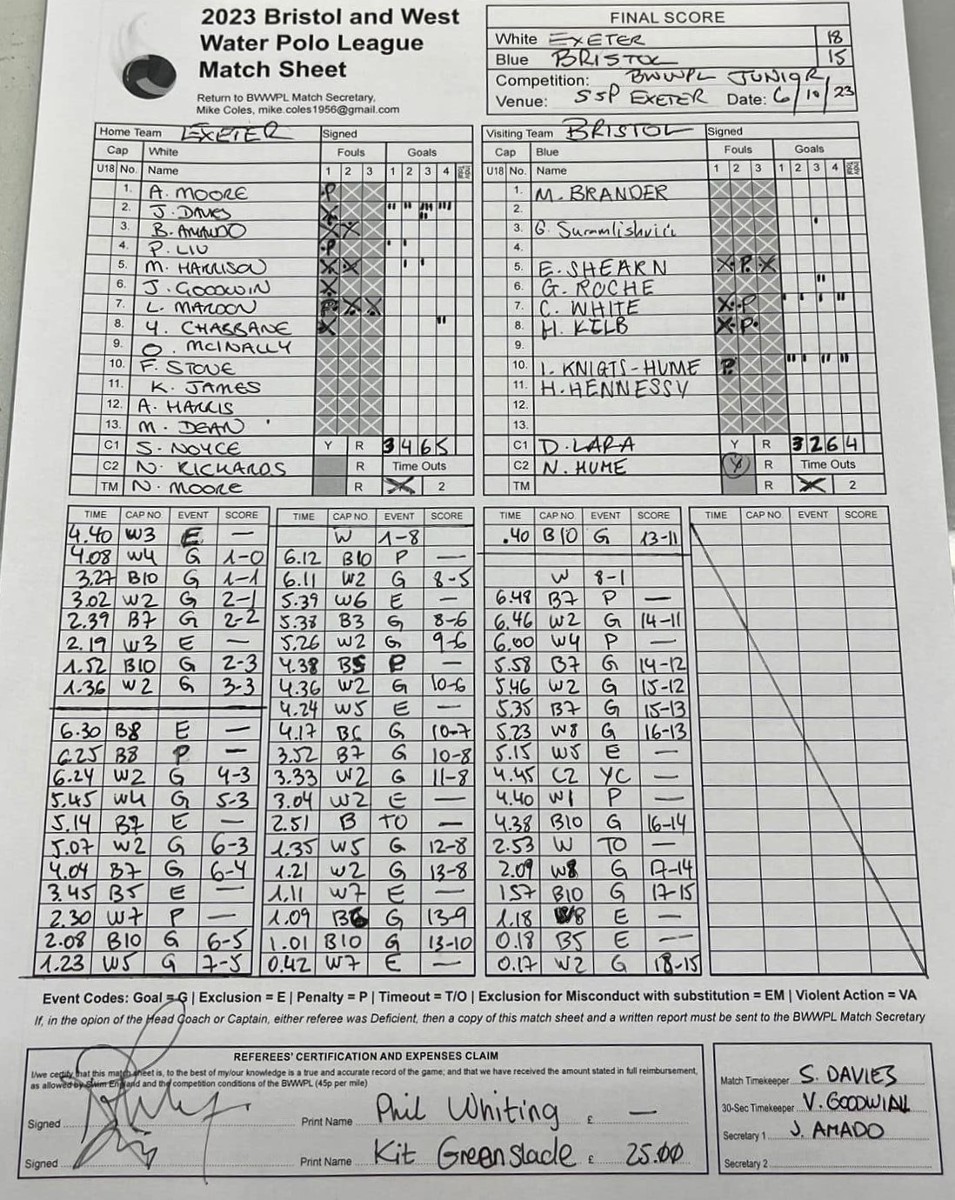 2023 Bristol and West
Water Polo League
Match Sheet
Return to BWWPL Match Secretary,
Mike Coles, mike.coles1956@gmail.com
FINAL SCORE
White EXETER 18
Blue BRISTOL 15
Competition: BWWPL JUNIOR
Venue: SSP EXETER Date: 6/10/23
Home Team EXETER Signed
Cap White Fouls Goals
U18 No. Name 1 2 3 1 2 3 4
1. A. MOORE P
2. J. DAVIES X
3. B. AMADO X X
4. P. LIU P
5. M. HARRISON X X
6. J. GOODWIN X
7. L. MAROON P X X
8. Y. CHABBANE X
9. O. MCINALLY
10. F. STONE
11. K. JAMES
12. A. HARRIS
13. M. DEAN
C1 S. NOYCE Y R 3 4 6 5
C2 N. RICHARDS R Time Outs
TM N. MOORE R X 2
Visiting Team BRISTOL Signed
Cap Blue Fouls Goals
U18 No. Name 1 2 3 1 2 3 4
1. M. BRANDER
2.
3. G.
4.
5. E. SHEARN X P X
6. G. ROCHE
7. C. WHITE X P
8. H. KILB X P
9.
10. I. KNIGTS-HUME P
11. H. HENNESSY
12.
13.
C1 D. LARA Y R 3 2 6 4
C2 N. HUME Y R Time Outs
TM R X 2
TIME CAP NO. EVENT SCORE
4.40 W3 E —
4.08 W4 G 1-0
3.27 B10 G 1-1
3.02 W2 G 2-1
2.39 B7 G 2-2
2.19 W3 E —
1.52 B10 G 2-3
1.36 W2 G 3-3
6.30 B8 E —
6.25 B8 P —
6.24 W2 G 4-3
5.45 W4 G 5-3
5.14 B7 E —
5.07 W2 G 6-3
4.04 B7 G 6-4
3.45 B5 E —
2.30 W7 P —
2.08 B10 G 6-5
1.23 W5 G 7-5
TIME CAP NO. EVENT SCORE
W 1-8
6.12 B10 P —
6.11 W2 G 8-5
5.39 W6 E —
5.38 B3 G 8-6
5.26 W2 G 9-6
4.38 B5 P —
4.36 W2 G 10-6
4.24 W5 E —
4.17 B6 G 10-7
3.52 B7 G 10-8
3.33 W2 G 11-8
3.04 W2 E —
2.51 B TO —
1.35 W5 G 12-8
1.21 W2 G 13-8
1.11 W7 E —
1.09 B6 G 13-9
1.01 B10 G 13-10
0.42 W7 E —
TIME CAP NO. EVENT SCORE
.40 B10 G 13-11
W 8-1
6.48 B7 P —
6.46 W2 G 14-11
6.00 W4 P —
5.58 B7 G 14-12
5.46 W2 G 15-12
5.35 B7 G 15-13
5.23 W8 G 16-13
5.15 W5 E —
4.45 C2 YC —
4.40 W1 P —
4.38 B10 G 16-14
2.53 W TO —
2.09 W8 G 17-14
157 B10 G 17-15
1.18 W8 E —
0.18 B5 E —
0.17 W2 G 18-15
TIME CAP NO. EVENT SCORE
Event Codes: Goal = G | Exclusion = E | Penalty = P | Timeout = T/O | Exclusion for Misconduct with substitution = EM | Violent Action = VA
If, in the opion of the Head Coach or Captain, either referee was Deficient, then a copy of this match sheet and a written report must be sent to the BWWPL Match Secretary
REFEREES' CERTIFICATION AND EXPENSES CLAIM
I/we certify that this match sheet is, to the best of my/our knowledge is a true and accurate record of the game; and that we have received the amount stated in full reimbursement,
as allowed by Swim England and the competition conditions of the BWWPL (45p per mile)
Signed Print Name Phil Whiting £ —
Signed Print Name Kit Greenslade £ 25.00
Match Timekeeper S. DAVIES
30-Sec Timekeeper V.
Secretary 1 J. AMADO
Secretary 2